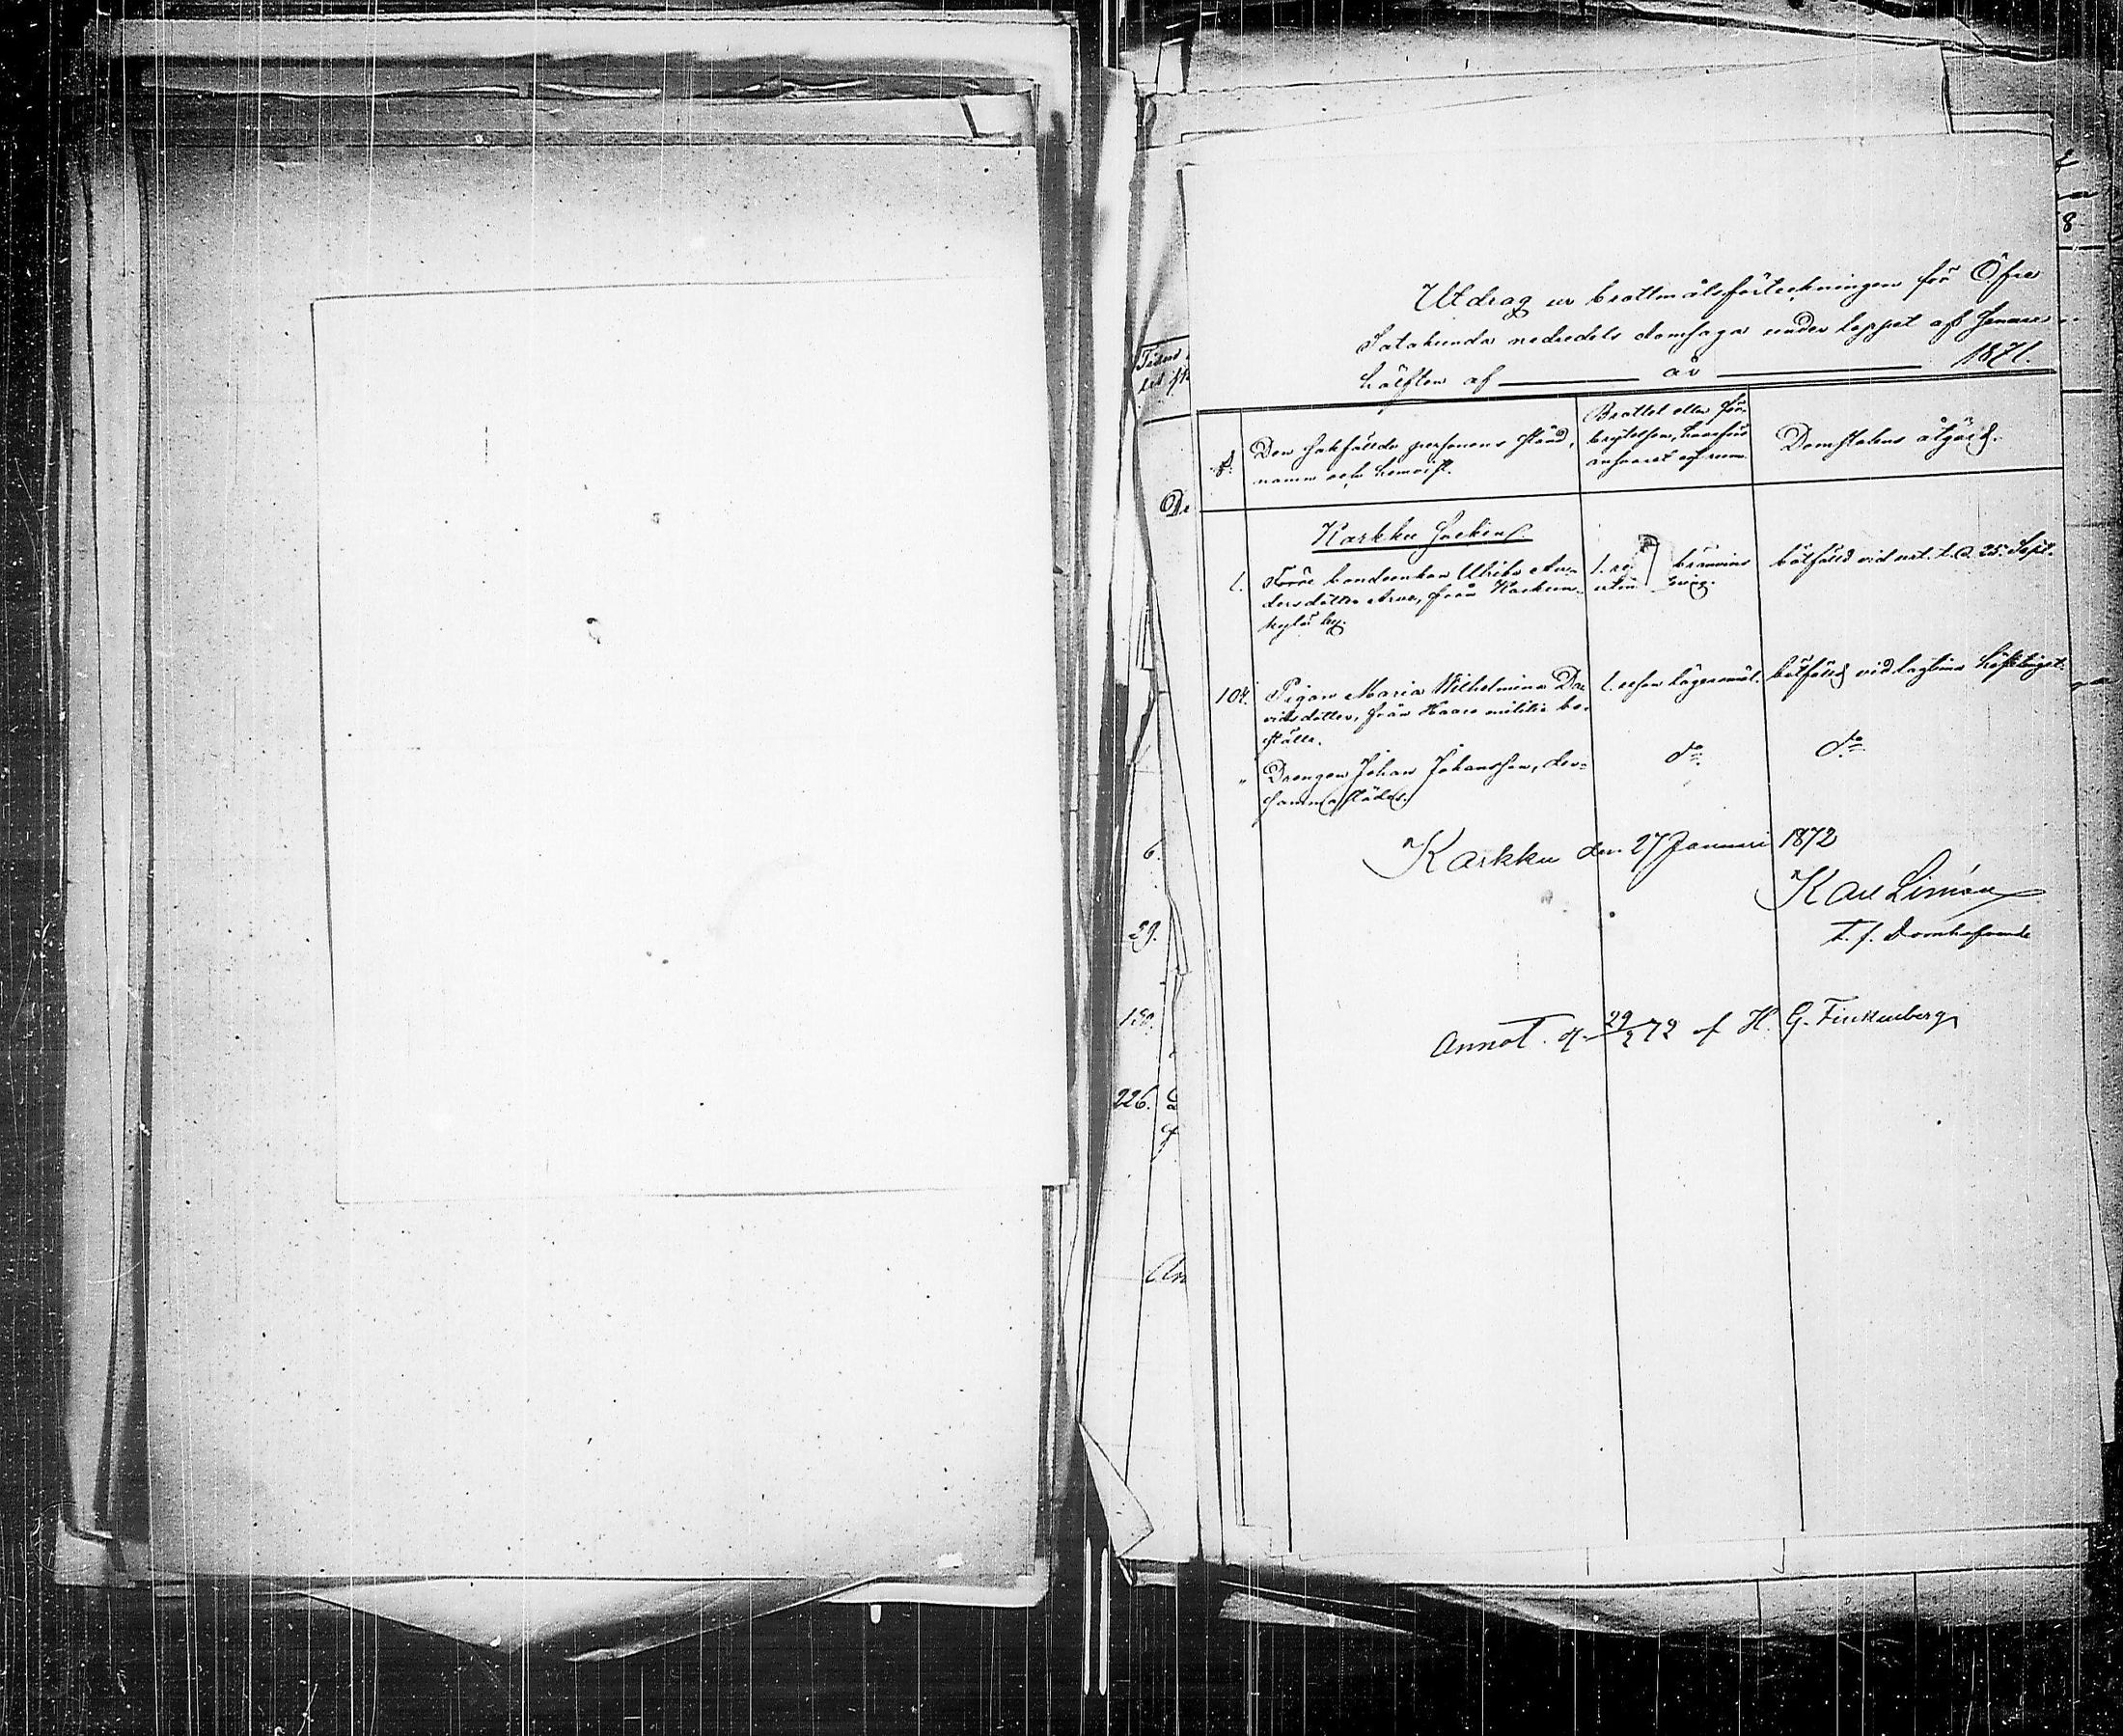 Utdrag ur brottmålsförteckningen för Öfre
Satakunda nedredels domsaga under loppet af senare
hälften af år 1871.
Den sakfällda personens stånd,
namn och hemvist.
Brottet eller för-
brytelsen, hvarför
ansvaret
Domstolens åtgärd.
Karkku Socken.
1. bondeenkan Ulrika An-
dersdotter från
kylä by.
1. bränvins
bötfälld vid urt. t. d. 25. Sept.
104. Pigan Maria Wilhelmina Da-
vidsdotter, från militie bo-
ställe.
1. resan lägersmål.
bötfälld vid lagtima hösttinget.
" Drengen Johan Johansson, der-
sammastädes.
do
do
Karkku den 27 Januari 1872
Karl Limón
T. f. Domhafvande
Annot. d. 29/2 72 af H. G. Finkenberg
6.
29.
226.
8.